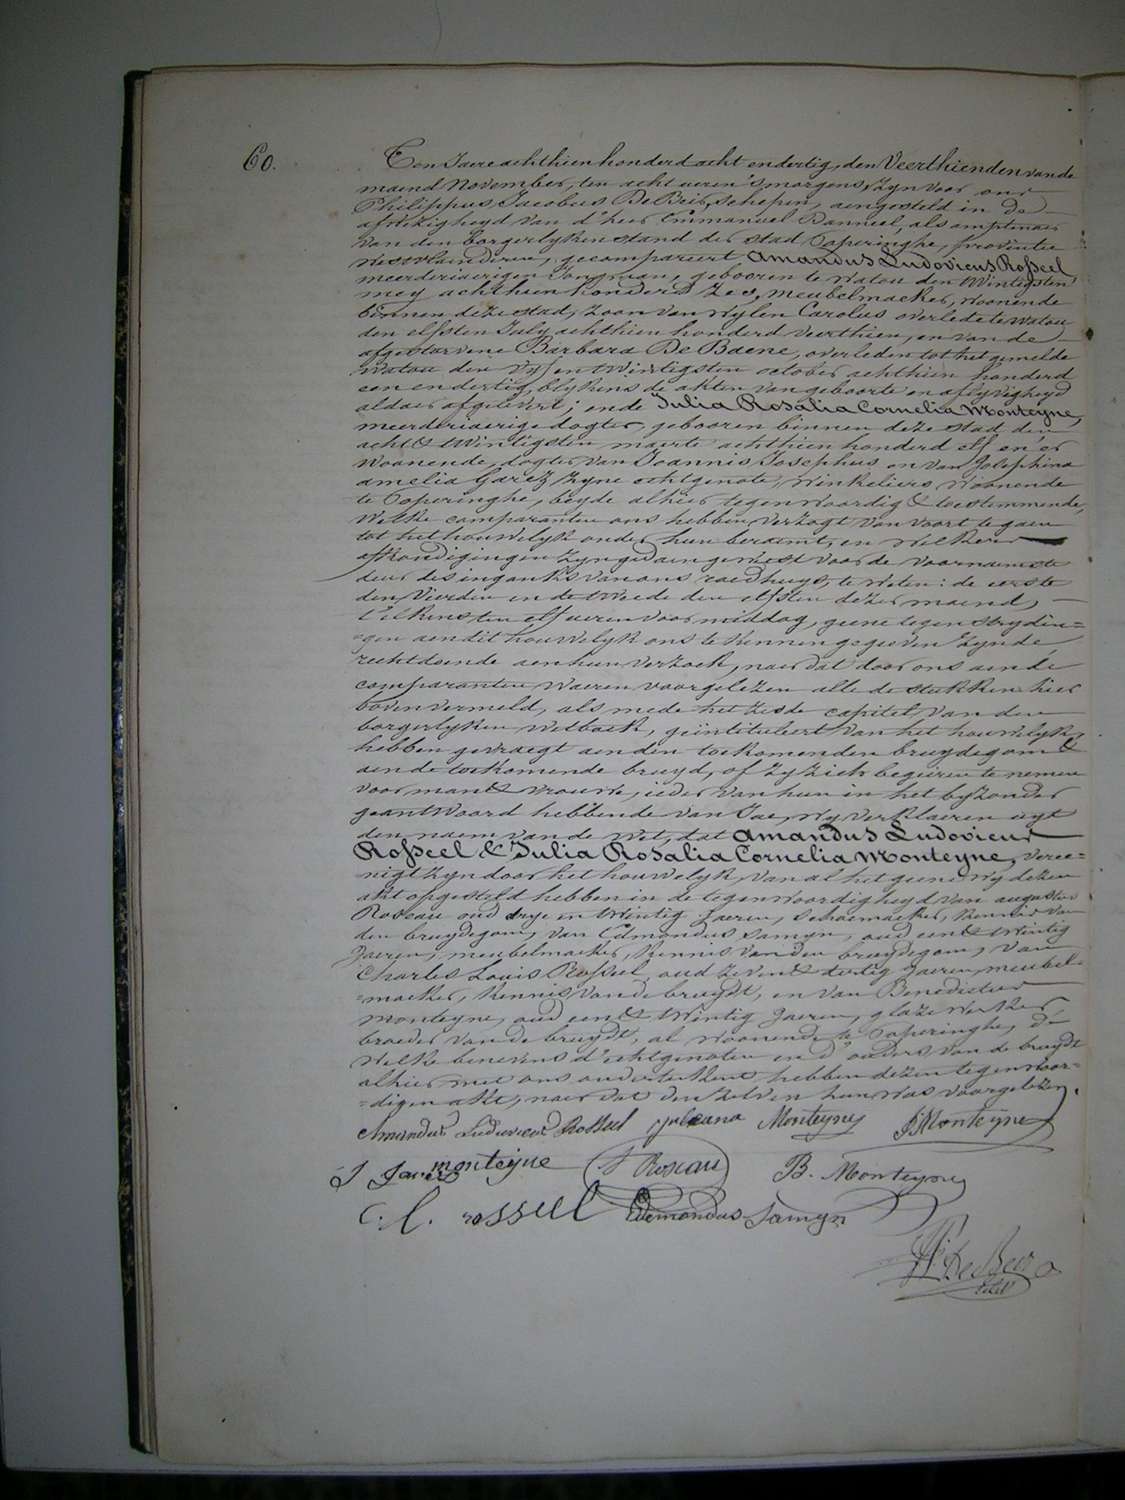 60.
Ten Jaere achthien honderd acht en dertig, den Veerthienden van de
maend November, ten acht ueren 's morgens, zyn voor ons
Philippus Jacobus De Beir, schepen, aengesteld in de
afwezigheyd van d'heer Emmanuel Banneel, als amptenaer
van den borgerlyken stand der stad Poperinghe, provintie
Westvlaenderen, gecompareert Amandus Ludovicus Rosseel
meerderjaerigen Jongman, gebooren te Watou den twintigsten
mey achthien honderd zes, meubelmaeker, woonende
binnen deze stad, zoon van wylen Carolus overlede te Watou
den elfsten July achthien honderd veerthien, en van de
afgestorvene Barbara De Baene, overleden tot het gemelde
Watou den vyf en twintigsten october achthien honderd
een en dertig, blykens de akten van geboorte en aflyvigheyd
aldaer afgelevert; ende Julia Rosalia Cornelia Monteyne,
meerderjaerige dogter, gebooren binnen deze stad den
acht & twintigsten maerte achthien honderd elf en er
woonende, dogter van Joannis Josephus en van Josephina
amelia Garez zyne echtgenote, winkeliers, woonende
te Poperinghe, beyde alhier tegenwoordig & toestemmende,
Welke comparanten ons hebben verzogt van voort te gaen
tot het houwelyk onder hun beraemt, en welkers
afkondigingen zyn gedaen geweest voor de voornaemste
deur des ingangs van ons raedhuys, te weten: de eerste
den vierden en de tweede den elfsten dezer maend,
t'elkens ten elf ueren voor middag, geene tegenstrydin=
=gen aen dit houwelyk ons te kennen gegeven zynde,
rechtdoende aen hun verzoek, naer dat door ons aen de
comparanten waeren voorgelezen alle de stukken hier
boven vermeld, als mede het zesde capitel van den
borgerlyken wetboek, geïntituleert van het houwelyk,
hebben gevraegt aen den toekomenden bruydegom &
aen de toekomende bruyd, of zy zich begeiren te nemen
voor man & vrouwe, ieder van hun in het byzonder
geantwoord hebbende van Jae, wy verklaeren uyt
den naem van de wet, dat Amandus Ludovicus
Rosseel & Julia Rosalia Cornelia Monteyne, veree=
nigt zyn door het houwelyk, van al het geene wy dezen
akt opgesteld hebben in de tegenwoordigheyd van augustus
Roseau oud drye en twintig Jaeren, schoemaeker, kennis van
den bruydegom, van Edmondus Samyn, oud een & twintig
Jaeren, meubelmaeker, kennis van den bruydegom, van
Charles Louis Rosseel, oud zeven & dertig Jaeren, meubel=
=maeker, kennis van de bruydt, en van Benedictus
Monteyne, oud een & twintig Jaeren, glazewerker,
broeder van de bruydt, al woonende te Poperinghe, de
welke benevens d'echtgenoten en d'ouders van de bruydt
alhier met ons onderteekent hebben dezen tegenwoor=
=digen akt, naer dat den zelven hun was voorgelezen.
Amandus Ludovicus Rosseel Juliana Monteyne J Monteyne
J Garez monteyne A Roseau B. Monteyne
C. L. rosseel Edemondus Samyn
P. J. De Beir